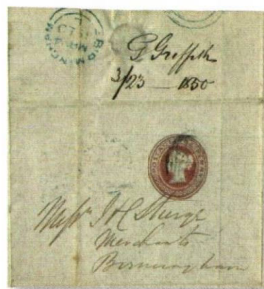 BIRMINGHAM
G Griffith
3/23 — 1850
Messrs J & C Sturge
Merchants
Birmingham